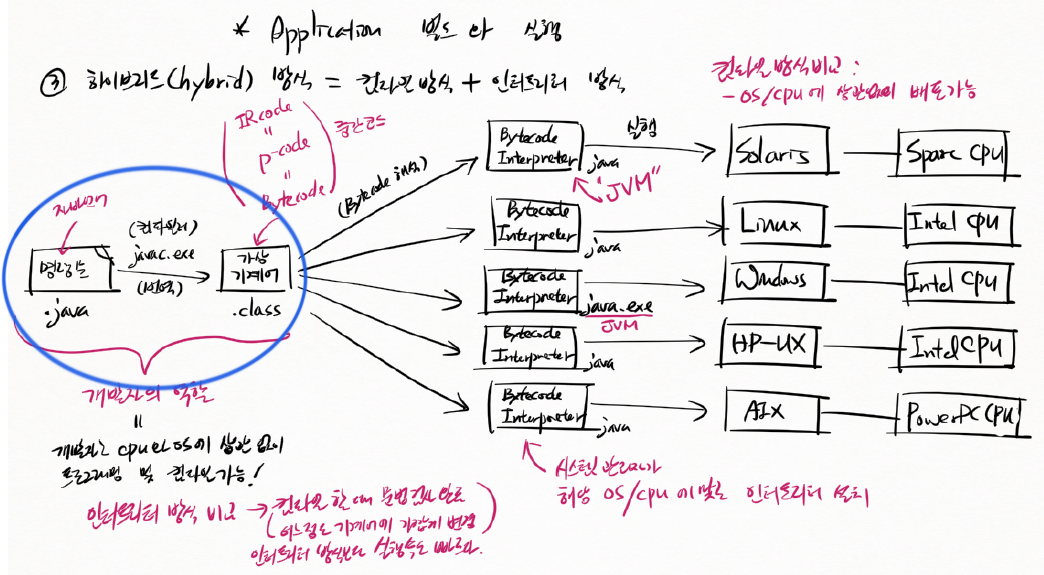 * Application 빌드와 실행
③ 하이브리드(hybrid) 방식 = 컴파일 방식 + 인터프리터 방식
컴파일 방식 비교 :
- OS/CPU에 상관없이 배포가능
IR code
"
p-code
"
Bytecode
중간코드
자바언어
명령문
.java
(컴파일러)
javac.exe
(번역)
가상
기계어
.class
(Bytecode 해석)
Bytecode
Interpreter
java
실행
"JVM"
Solaris
Sparc CPU
Bytecode
Interpreter
java
Linux
Intel CPU
Bytecode
Interpreter
java.exe
JVM
Windows
Intel CPU
Bytecode
Interpreter
java
HP-UX
Intel CPU
Bytecode
Interpreter
java
AIX
PowerPC CPU
개발자의 역할
=
개발자는 CPU와 OS에 상관 없이
프로그래밍 및 컴파일 가능!
시스템 관리자가
해당 OS/CPU에 맞는 인터프리터 설치
인터프리터 방식 비교 → 컴파일 할 때 문법 검사 완료
(어느정도 기계어에 가깝게 변경)
인터프리터 방식보다 실행속도 빠르다.